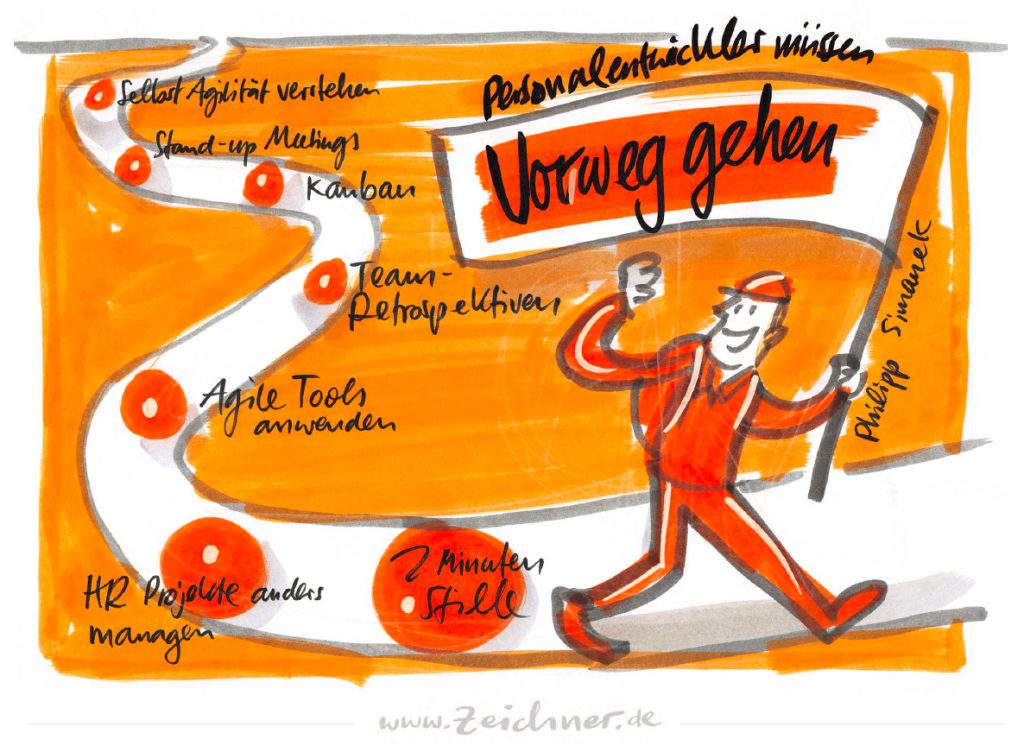 Personalentwickler müssen
Vorweg gehen
Philipp Simanek
Selbst Agilität verstehen
Stand-up Meetings
Kanban
Team-
Retrospektiven
Agile Tools
anwenden
HR Projekte anders
managen
2 Minuten
Stille
www.Zeichner.de